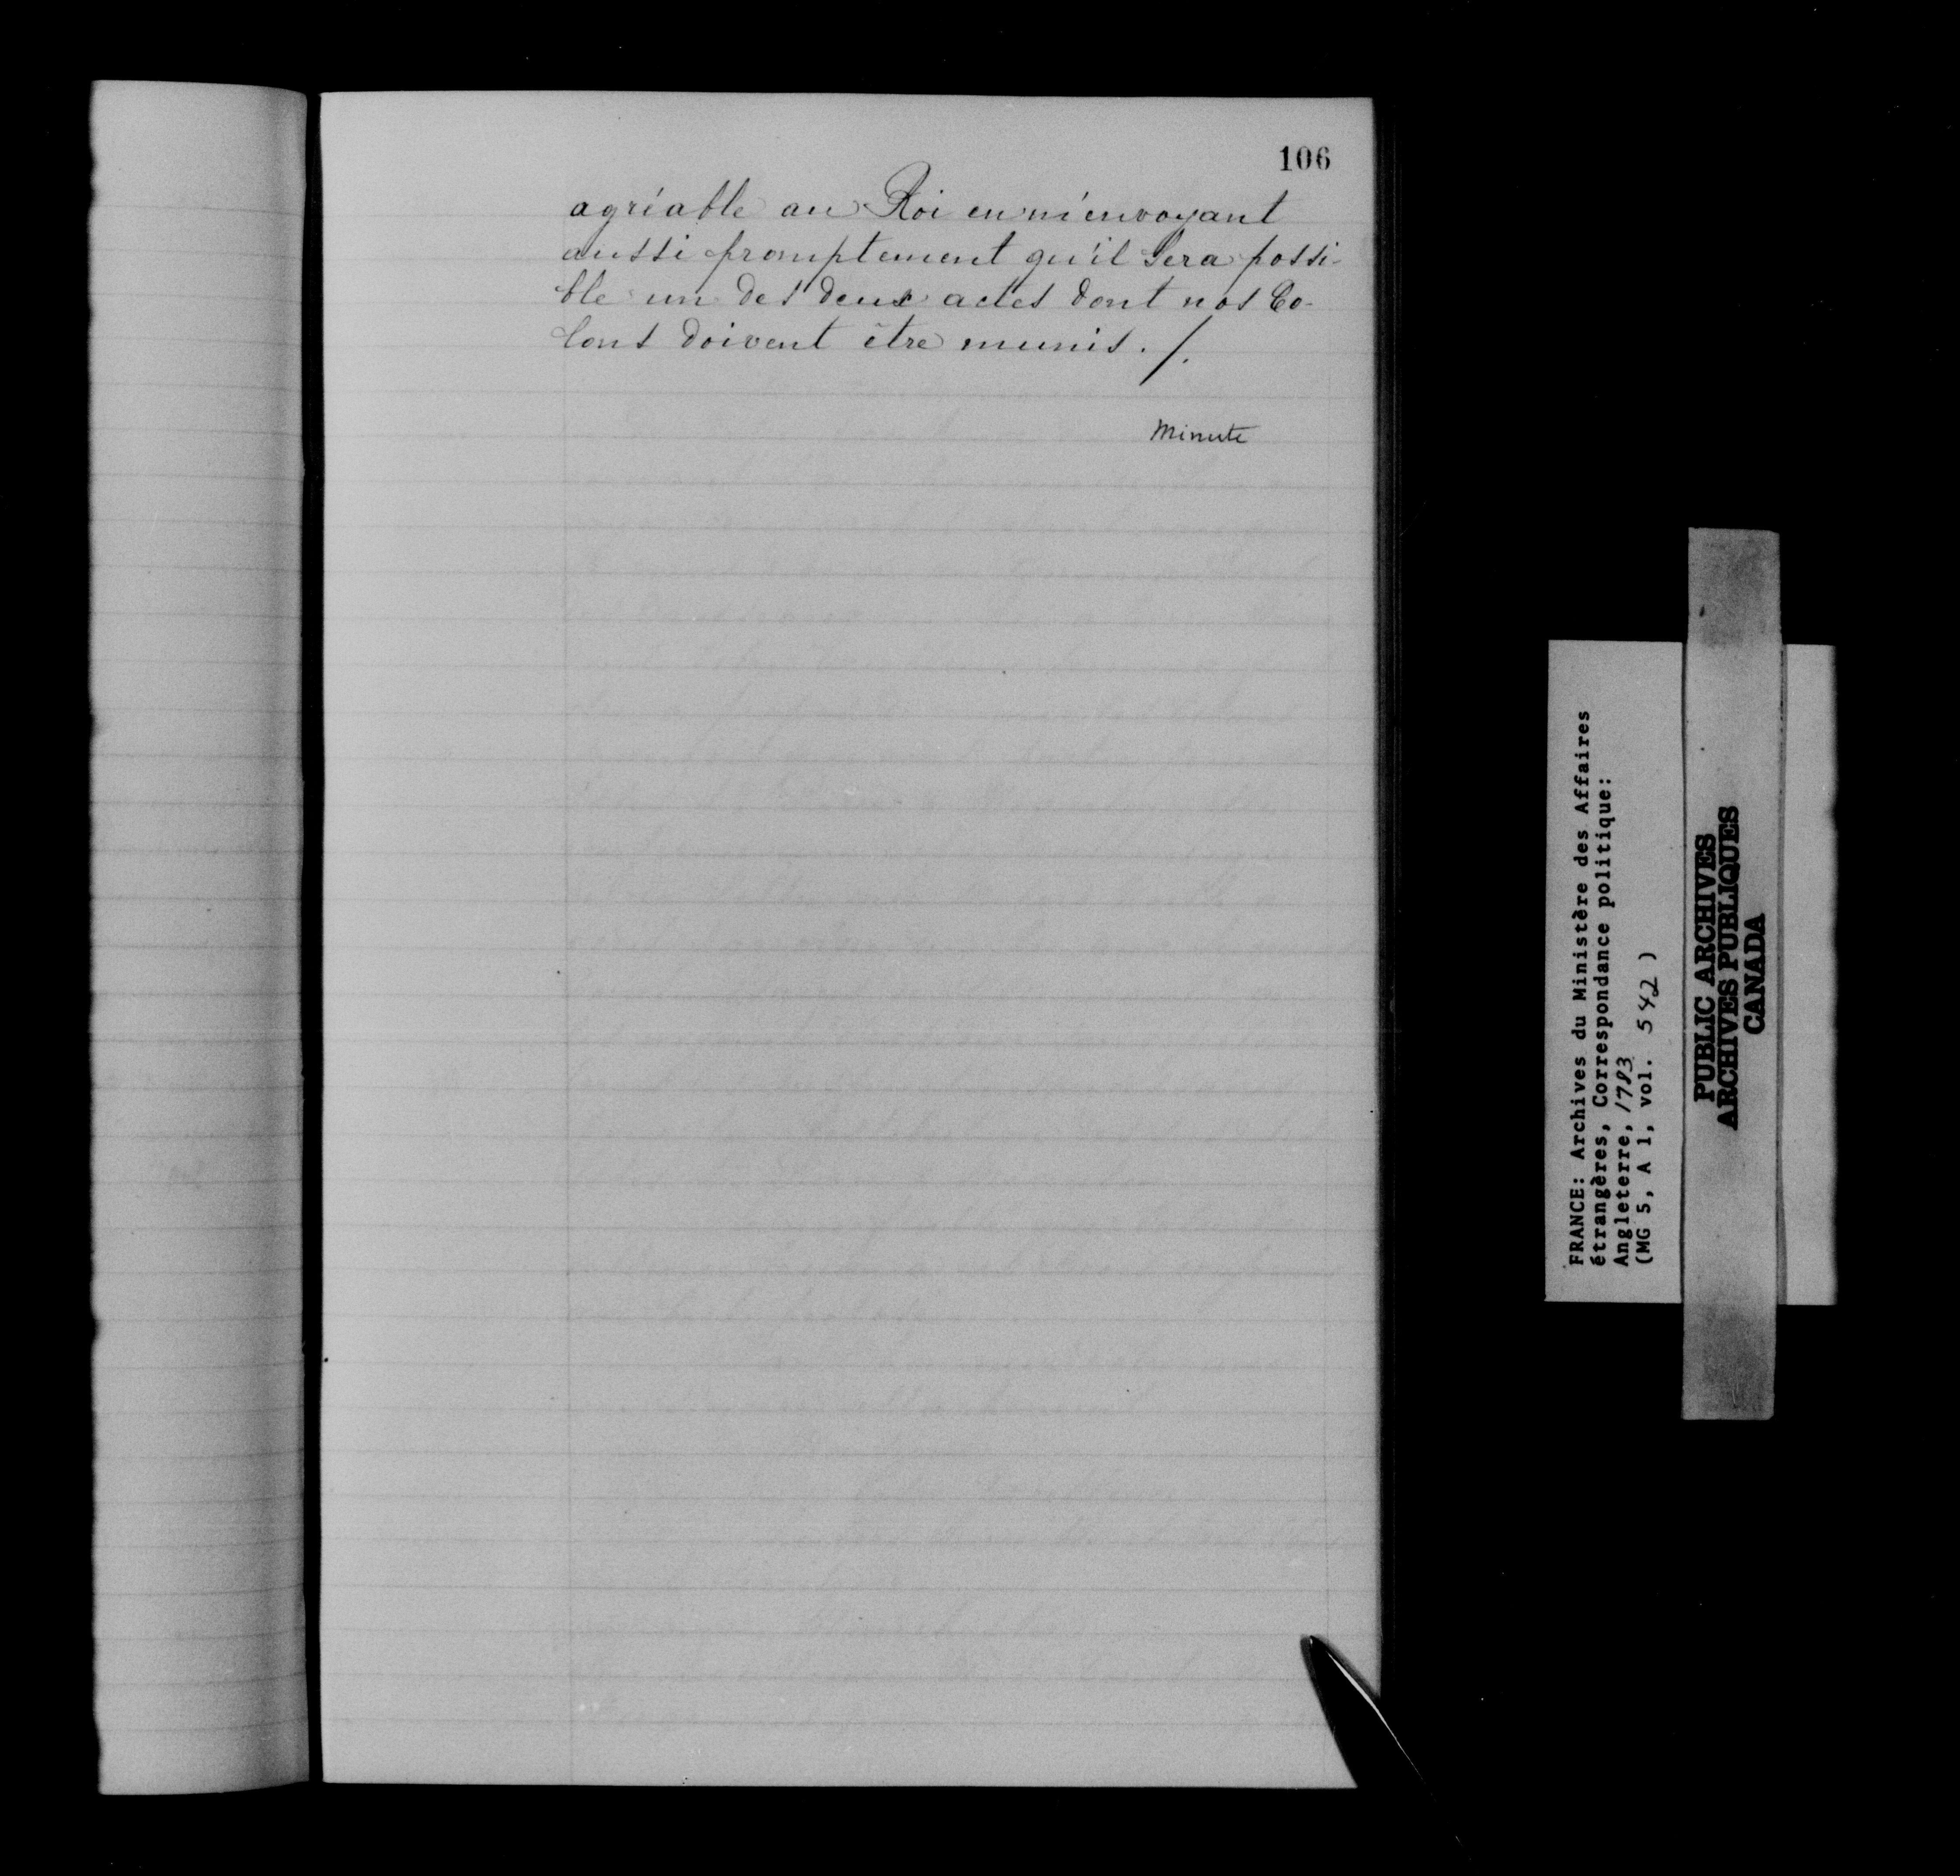 106
agréable au Roi en m'envoyant
aussi promptement qu'il sera possi-
ble un des deux actes dont nos Co-
lons doivent être munis ./.
Minute
FRANCE: Archives du Ministère des Affaires
étrangères, Correspondance politique:
Angleterre, 1783
(MG 5, A 1, vol. 542)
PUBLIC ARCHIVES
ARCHIVES PUBLIQUES
CANADA